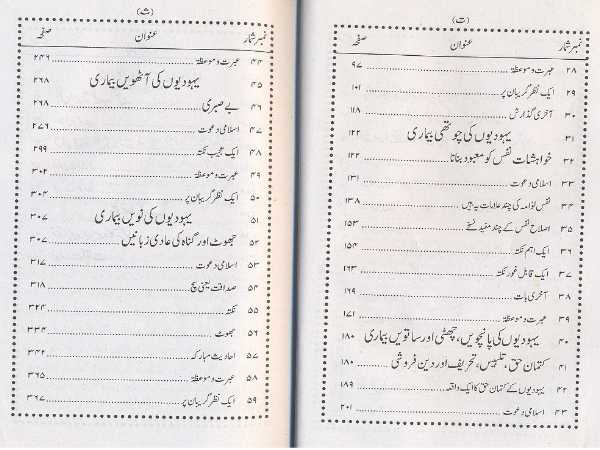 (ت)
نمبرشمار عنوان صفحہ
۲۸ عبرت و موعظۃ ۹۷
۲۹ ایک نظر گریبان پر ۱۰۱
۳۰ آخری گذارش ۱۱۸
۳۱ یہودیوں کی چوتھی بیماری ۱۲۲
۳۲ خواہشات نفس کو معبود بنانا ۱۲۲
۳۳ اسلامی دعوت ۱۳۱
۳۴ نفس لوامہ کی چند عادات یہ ہیں ۱۳۸
۳۵ اصلاح نفس کے چند مفید نسخے ۱۵۳
۳۶ ایک اہم نکتہ ۱۵۴
۳۷ ایک قابل غور نکتہ ۱۶۳
۳۸ آخری بات ۱۶۹
۳۹ عبرت و موعظۃ ۱۷۱
۴۰ یہودیوں کی پانچویں، چھٹی اور ساتویں بیماری ۱۸۰
۴۱ کتمان حق، تلبیس، تحریف اور دین فروشی ۱۸۰
۴۲ یہودیوں کے کتمان حق کا ایک واقعہ ۱۸۹
۴۳ اسلامی دعوت ۲۰۱
(ث)
نمبرشمار عنوان صفحہ
۴۴ عبرت و موعظۃ ۲۴۶
۴۵ یہودیوں کی آٹھویں بیماری ۲۶۸
۴۶ بے صبری ۲۶۸
۴۷ اسلامی دعوت ۲۷۶
۴۸ ایک عجیب نکتہ ۲۹۹
۴۹ عبرت و موعظۃ ۳۰۲
۵۰ ایک نظر گریبان پر ۳۰۴
۵۱ یہودیوں کی نویں بیماری ۳۰۷
۵۲ جھوٹ اور گناہ کی عادی زبانیں ۳۰۷
۵۳ اسلامی دعوت ۳۱۷
۵۴ صداقت یعنی سچ ۳۱۸
۵۵ نکتہ ۳۲۴
۵۶ جھوٹ ۳۳۴
۵۷ احادیث مبارکہ ۳۴۲
۵۸ عبرت و موعظۃ ۳۶۵
۵۹ ایک نظر گریبان پر ۳۶۷